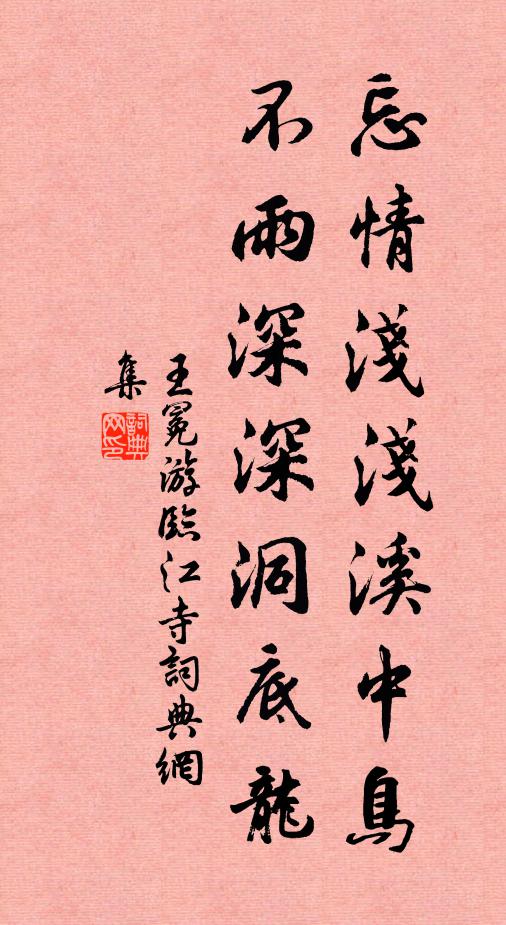 忘情淺淺溪中鳥
不雨深深洞底龍
王冕游臨江寺詞典網
集
詞典
网印